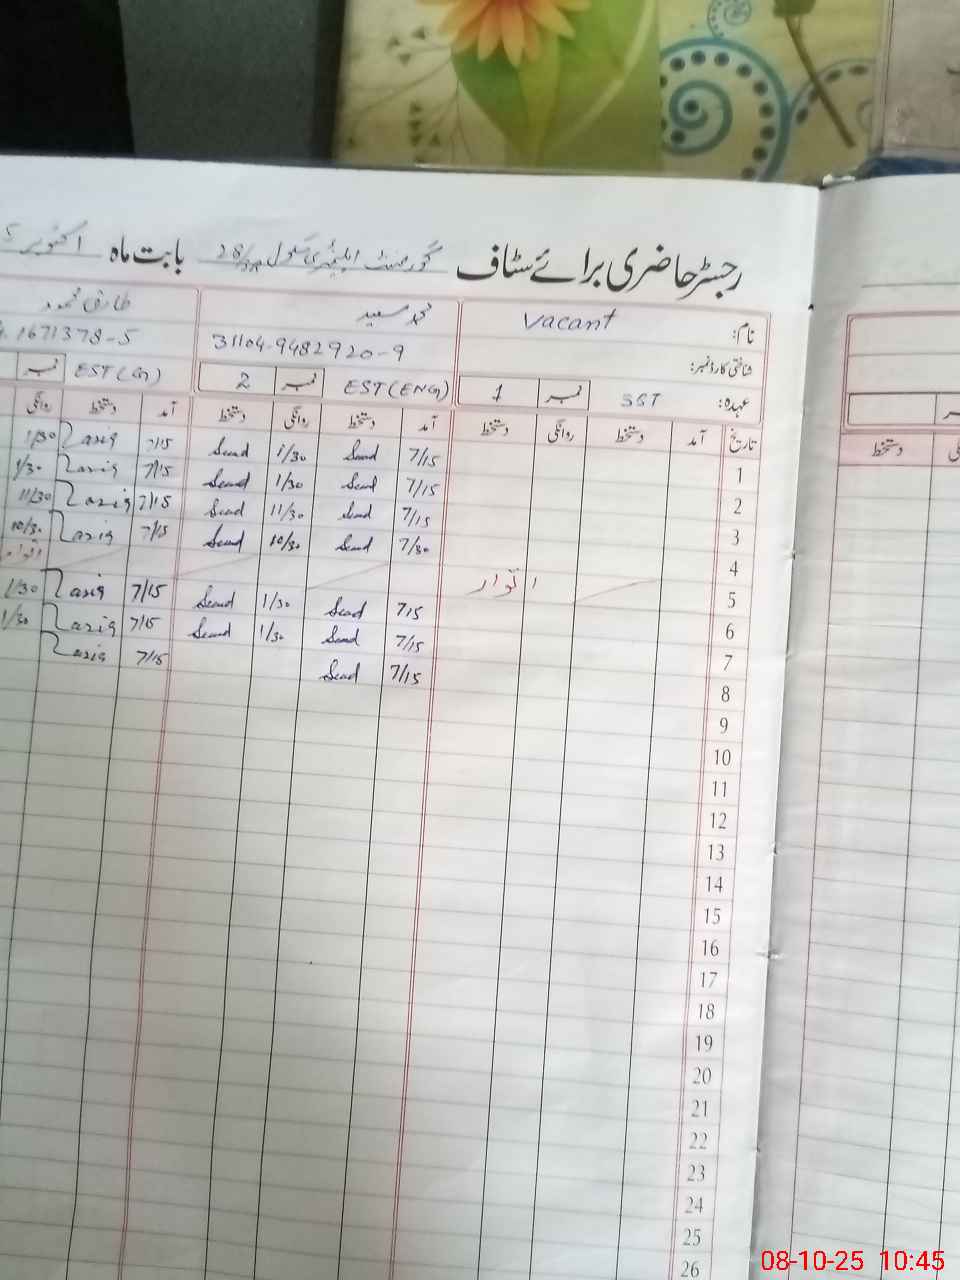 رجسٹر حاضری برائے سٹاف گورنمنٹ ایلیمنٹری سکول 28/3R بابت ماہ اکتوبر
نام: Vacant محمد سعید طارق محمود
شناختی کارڈ نمبر: 31104-9482920-9 1671378-5
عہدہ: SST نمبر 1 EST(ENG) نمبر 2 EST(G) نمبر
تاریخ آمد دستخط روانگی دستخط آمد دستخط روانگی دستخط آمد دستخط روانگی
دستخط
1 7/15 Saad 1/30 Saad 7/15 Tariq 1/30
2 7/15 Saad 1/30 Saad 7/15 Tariq 1/30
3 7/15 Saad 11/30 Saad 7/15 Tariq 11/30
4 7/30 Saad 10/30 Saad 7/15 Tariq 10/30
5 اتوار اتوار
6 7/15 Saad 1/30 Saad 7/15 Tariq 1/30
7 7/15 Saad 1/30 Saad 7/15 Tariq 1/30
8 7/15 Saad 7/15 Tariq
9
10
11
12
13
14
15
16
17
18
19
20
21
22
23
24
25
26
08-10-25 10:45